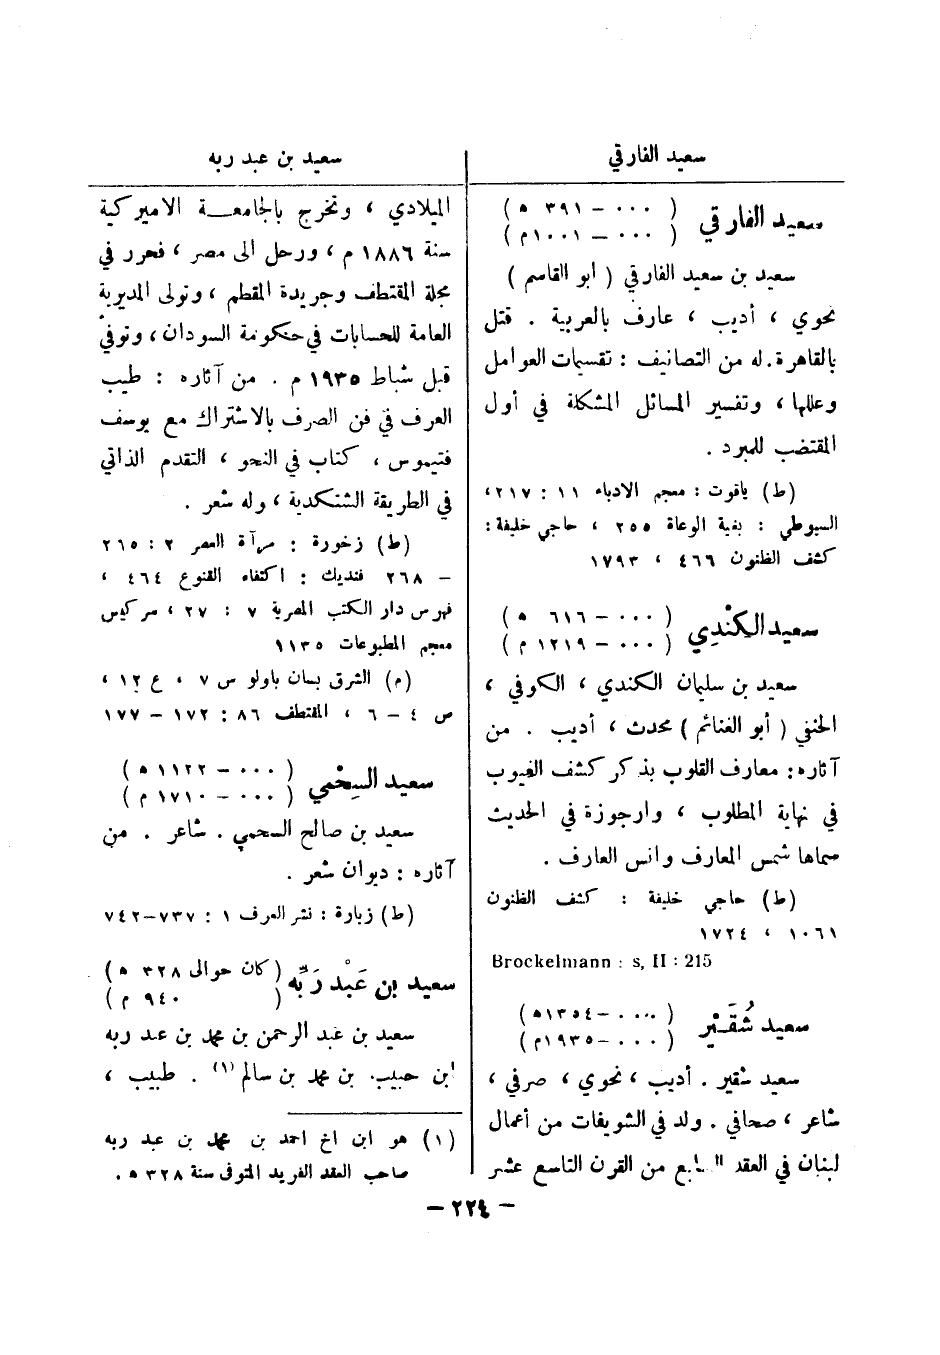 سعيد الفارقي
سعيد الفارقي ( ٠٠٠ – ٣٩١ ه )
( ٠٠٠ – ١٠٠١م )
سعيد بن سعيد الفارقي ( أبو القاسم )
نحوي ، أديب ، عارف بالعربية . قتل
بالقاهرة. له من التصانيف : تقسيمات العوامل
وعللها ، وتفسير المسائل المشكلة في أول
المقتضب للمبرد .
(ط) ياقوت : معجم الادباء ١١ : ٢١٧،
السيوطي : بغية الوعاة ٢٥٥ ، حاجي خليفة :
كشف الظنون ٤٦٦ ، ١٧٩٣
سعيد الكِنْدِي ( ٠٠٠ – ٦١٦ ه )
( ٠٠٠ – ١٢١٩ م )
سعيد بن سليمان الكندي ، الكوفي ،
الحنفي ( أبو الغنائم ) محدث ، أديب . من
آثاره : معارف القلوب بذكر كشف الغيوب
في نهاية المطلوب ، وارجوزة في الحديث
سماها شمس المعارف وانس العارف .
(ط) حاجي خليفة : كشف الظنون
١٠٦١ ، ١٧٢٤
Brockelmann : s, II : 215
سعيد شُقَير ( ٠٠٠ – ١٣٥٤ه )
( ٠٠٠ – ١٩٣٥م )
سعيد شقير . أديب ، نحوي ، صرفي ،
شاعر ، صحافي . ولد في الشويفات من أعمال
لبنان في العقد السابع من القرن التاسع عشر
سعيد بن عبد ربه
الميلادي ، وتخرج بالجامعة الاميركية
سنة ١٨٨٦ م ، ورحل الى مصر ، فحرر في
مجلة المقتطف وجريدة المقطم ، وتولى المديرية
العامة للحسابات في حكومة السودان ، وتوفي
قبل شباط ١٩٣٥ م . من آثاره : طيب
العرف في فن الصرف بالاشتراك مع يوسف
فتيموس ، كتاب في النحو ، التقدم الذاتي
في الطريقة الشتكدية ، وله شعر .
(ط) زخورة : مرآة العصر ٢ : ٢٦٥
– ٢٦٨ فنديك : اكتفاء القنوع ٤٦٤ ،
فهرس دار الكتب المصرية ٧ : ٢٧ ، سركيس
معجم المطبوعات ١١٣٥
(م) الشرق بسان باولو س ٧ ، ع ١٢ ،
ص ٤ – ٦ ، المقتطف ٨٦ : ١٧٢ – ١٧٧
سعيد السِحْمي ( ٠٠٠ – ١١٢٢ ه )
( ٠٠٠ – ١٧١٠ م )
سعيد بن صالح السحمي . شاعر . من
آثاره : ديوان شعر .
(ط) زبارة : نشر العرف ١ : ٧٣٧–٧٤٢
سعيد بن عَبْد رَبِّه (كان حوالى ٣٢٨ ه )
( ٩٤٠ م )
سعيد بن عبد الرحمن بن محمد بن عبد ربه
ابن حبيب بن محمد بن سالم (١) . طبيب ،
(١) هو ابن اخ احمد بن محمد بن عبد ربه
صاحب العقد الفريد المتوفى سنة ٣٢٨ ه .
– ٢٢٤ –